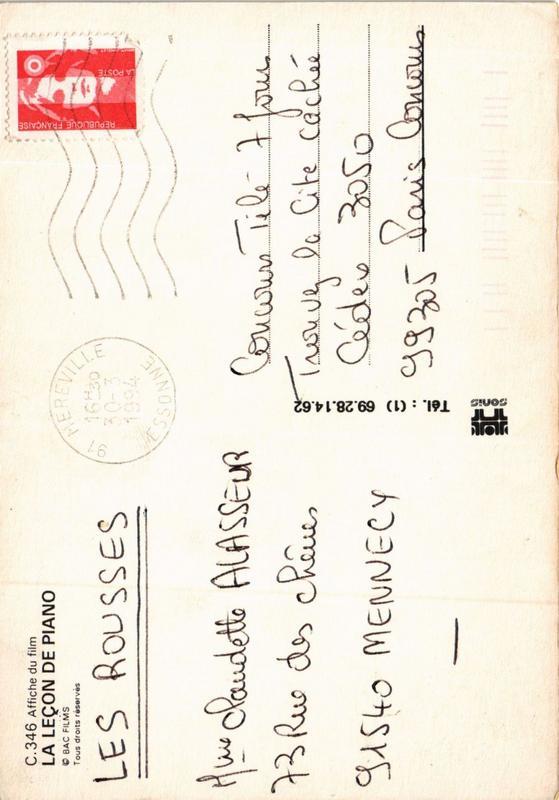 C.346 Affiche du film
LA LEÇON DE PIANO
© BAC FILMS
Tous droits réservés
LES ROUSSES
Mme Claudette ALASSEUR
73 Rue des chênes
91540 MENNECY
91 MEREVILLE
16H30
30-3
1994
ESSONNE
LA POSTE
REPUBLIQUE FRANÇAISE
Concours Télé 7 Jours
Trouvez la Cité cachée
Cédex 3050
99305 Paris Concours
Tél. : (1) 69.28.14.62
SONIS